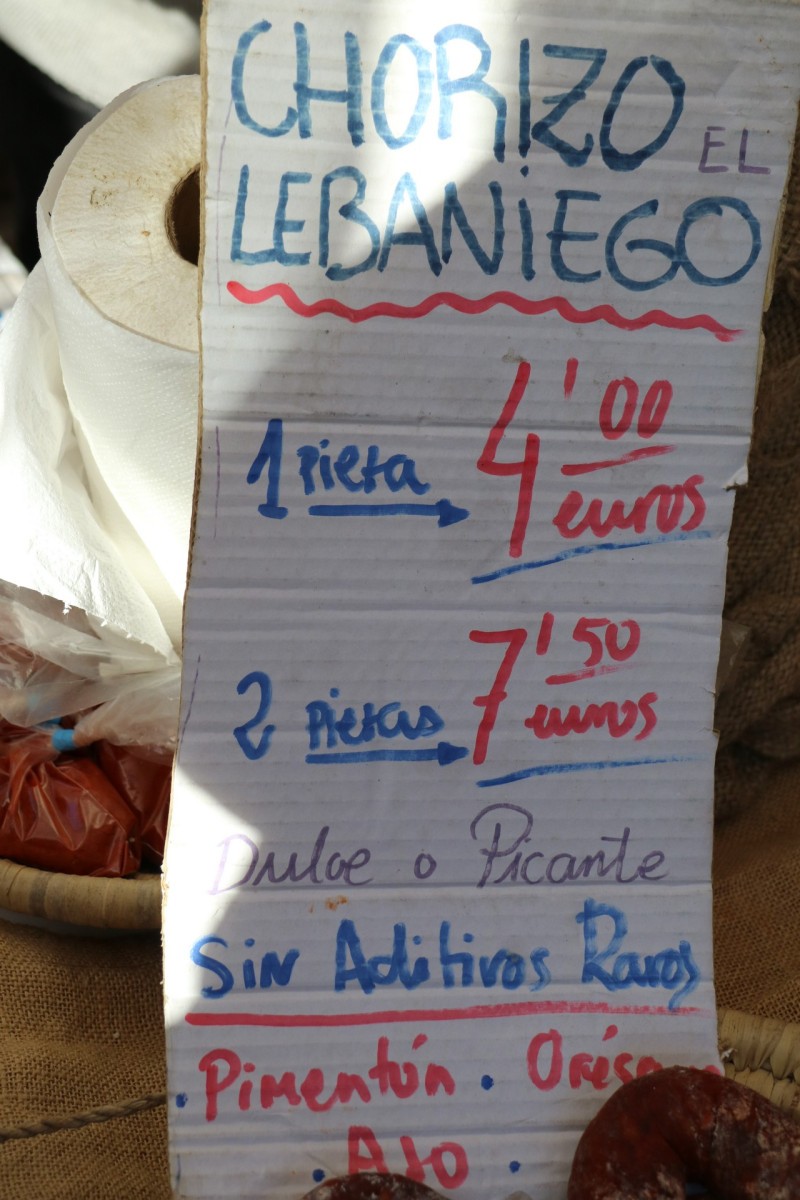 CHORIZO EL
LEBANIEGO
1 pieza 4'00 euros
2 piezas 7'50 euros
Dulce o Picante
Sin Aditivos Raros
· Pimentón · Oréga
· Ajo ·